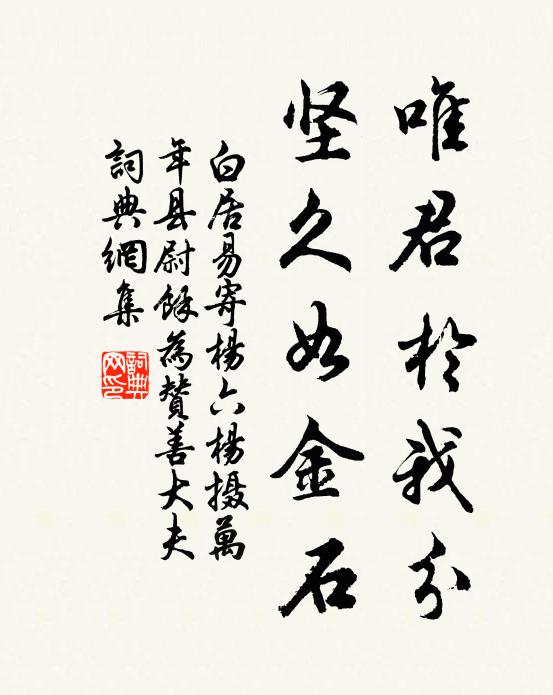 唯君於我分
坚久如金石
白居易寄楊六楊摄萬
年县尉餘為贊善大夫
詞典網集
詞典網印